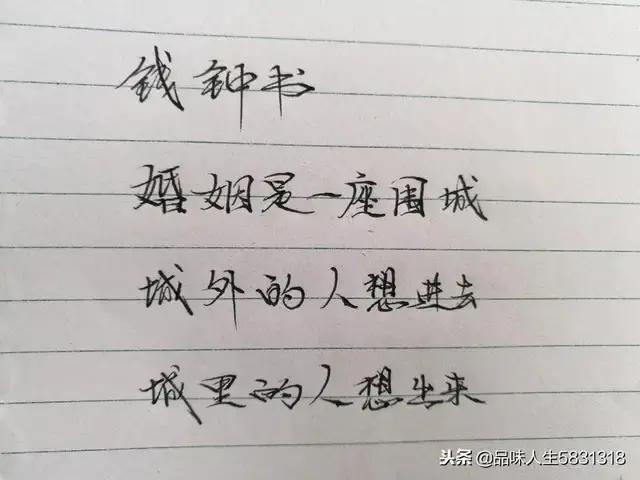 钱钟书
婚姻是一座围城
城外的人想进去
城里的人想出来
头条 @品味人生5831318